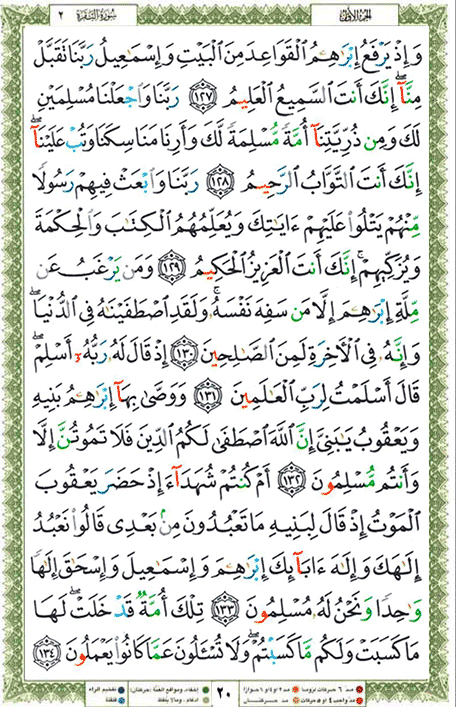 سُورَةُ البَقَرَة ٢ الجُزْءُ الأَوَّلُ
وَإِذْ يَرْفَعُ إِبْرَٰهِـۧمُ ٱلْقَوَاعِدَ مِنَ ٱلْبَيْتِ وَإِسْمَٰعِيلُ رَبَّنَا تَقَبَّلْ
مِنَّآ ۖ إِنَّكَ أَنتَ ٱلسَّمِيعُ ٱلْعَلِيمُ ١٢٧ رَبَّنَا وَٱجْعَلْنَا مُسْلِمَيْنِ
لَكَ وَمِن ذُرِّيَّتِنَآ أُمَّةً مُّسْلِمَةً لَّكَ وَأَرِنَا مَنَاسِكَنَا وَتُبْ عَلَيْنَآ ۖ
إِنَّكَ أَنتَ ٱلتَّوَّابُ ٱلرَّحِيمُ ١٢٨ رَبَّنَا وَٱبْعَثْ فِيهِمْ رَسُولًا
مِّنْهُمْ يَتْلُوا۟ عَلَيْهِمْ ءَايَٰتِكَ وَيُعَلِّمُهُمُ ٱلْكِتَٰبَ وَٱلْحِكْمَةَ
وَيُزَكِّيهِمْ ۚ إِنَّكَ أَنتَ ٱلْعَزِيزُ ٱلْحَكِيمُ ١٢٩ وَمَن يَرْغَبُ عَن
مِّلَّةِ إِبْرَٰهِـۧمَ إِلَّا مَن سَفِهَ نَفْسَهُۥ ۚ وَلَقَدِ ٱصْطَفَيْنَٰهُ فِى ٱلدُّنْيَا ۖ
وَإِنَّهُۥ فِى ٱلْـَٔاخِرَةِ لَمِنَ ٱلصَّٰلِحِينَ ١٣٠ إِذْ قَالَ لَهُۥ رَبُّهُۥٓ أَسْلِمْ ۖ
قَالَ أَسْلَمْتُ لِرَبِّ ٱلْعَٰلَمِينَ ١٣١ وَوَصَّىٰ بِهَآ إِبْرَٰهِـۧمُ بَنِيهِ
وَيَعْقُوبُ يَٰبَنِىَّ إِنَّ ٱللَّهَ ٱصْطَفَىٰ لَكُمُ ٱلدِّينَ فَلَا تَمُوتُنَّ إِلَّا
وَأَنتُم مُّسْلِمُونَ ١٣٢ أَمْ كُنتُمْ شُهَدَآءَ إِذْ حَضَرَ يَعْقُوبَ
ٱلْمَوْتُ إِذْ قَالَ لِبَنِيهِ مَا تَعْبُدُونَ مِنۢ بَعْدِى قَالُوا۟ نَعْبُدُ
إِلَٰهَكَ وَإِلَٰهَ ءَابَآئِكَ إِبْرَٰهِـۧمَ وَإِسْمَٰعِيلَ وَإِسْحَٰقَ إِلَٰهًا
وَٰحِدًا وَنَحْنُ لَهُۥ مُسْلِمُونَ ١٣٣ تِلْكَ أُمَّةٌ قَدْ خَلَتْ ۖ لَهَا
مَا كَسَبَتْ وَلَكُم مَّا كَسَبْتُمْ ۖ وَلَا تُسْـَٔلُونَ عَمَّا كَانُوا۟ يَعْمَلُونَ ١٣٤
٢٠